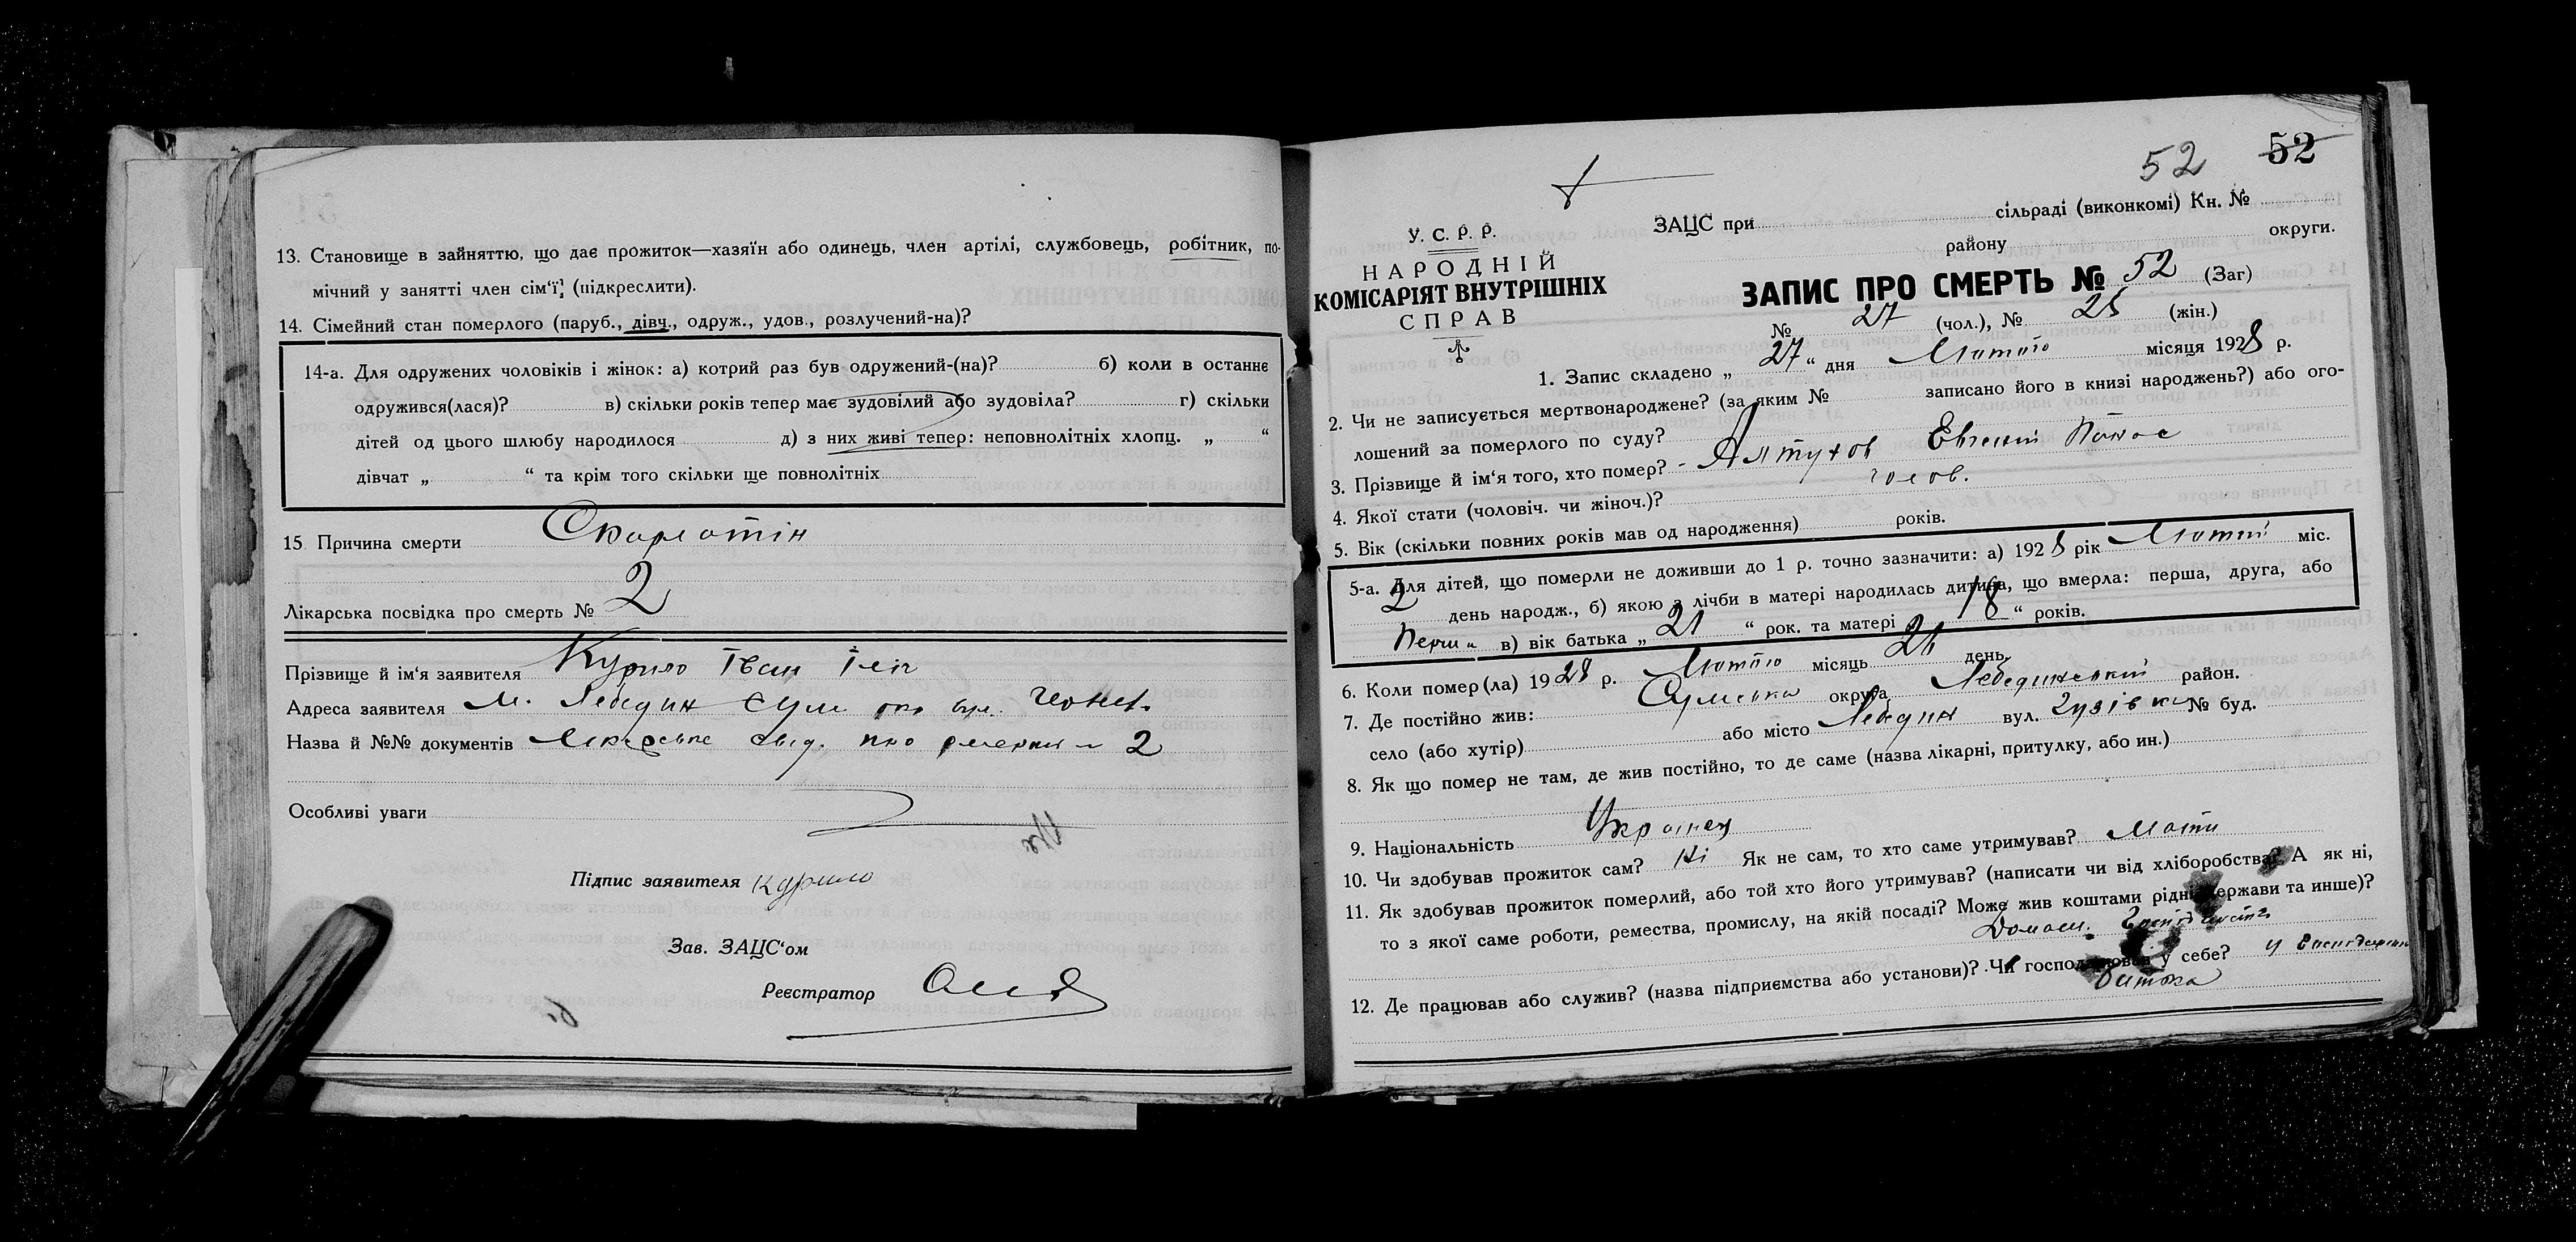 13. Становище в зайняттю, що дає прожиток—хазяїн або одинець, член артілі, службовець, робітник, по-
мічний у занятті член сім‘ї, (підкреслити).
14. Сімейний стан померлого (паруб., дівч., одруж., удов., розлучений-на)?
14-а. Для одружених чоловіків і жінок: а) котрий раз був одружений-(на)? б) коли в останнє
одружився(лася)? в) скільки років тепер має зудовілий або зудовіла? г) скільки
дітей од цього шлюбу народилося д) з них живі тепер: неповнолітніх хлопц. „ “
дівчат „ “ та крім того скільки ще повнолітніх
15 Причина смерти Скарлатін
Лікарська посвідка про смерть № 2
Прізвище й ім‘я заявителя Курило Іван
Адреса заявителя м. Лебедин Сум окр вул.
Назва й №№ документів Лікарське свід. про 2
Особливі уваги
Підпис заявителя Курило
Зав. ЗАЦС‘ом
Реєстратор
52 52
У. С. Р. Р.
НАРОДНІЙ
КОМІСАРІЯТ ВНУТРІШНІХ
СПРАВ
ЗАЦС при сільраді (виконкомі) Кн. №
району округи.
ЗАПИС ПРО СМЕРТЬ № 52 (Заг)
№ 27 (чол.), № 25 (жін.)
1. Запис складено „ 27 “ дня Лютого місяця 1928 р.
2. Чи не записується мертвонароджене? (за яким № записано його в книзі народжень?) або ого-
лошений за померлого по суду?
3. Прізвище й ім‘я того, хто помер? - Алтухов Евгений
4. Якої стати (чоловіч. чи жіноч.)? чолов.
5. Вік (скільки повних років мав од народження) років.
5-а. Для дітей, що померли не доживши до 1 р. точно зазначити: а) 1928 рік Лютий міс.
2 день народж., б) якою з лічби в матері народилась дитина, що вмерла: перша, друга, або
Перш в) вік батька „ 21 “ рок. та матері 18 “ років.
6. Коли помер(ла) 1928 р. Лютого місяць 21 день
7. Де постійно жив: Сумська округа Лебединський район.
село (або хутір) або місто Лебедин вул. № буд.
8. Як що помер не там, де жив постійно, то де саме (назва лікарні, притулку, або ин.)
9. Національність Украинец
10. Чи здобував прожиток сам? Ні Як не сам, то хто саме утримував? Мати
11. Як здобував прожиток померлий, або той хто його утримував? (написати чи від хліборобства? А як ні,
то з якої саме роботи, ремества, промислу, на якій посаді? Може жив коштами рідні, держави та инше)?
Домаш.
12. Де працював або служив? (назва підприємства або установи)? Чи господарював у себе? у
батька